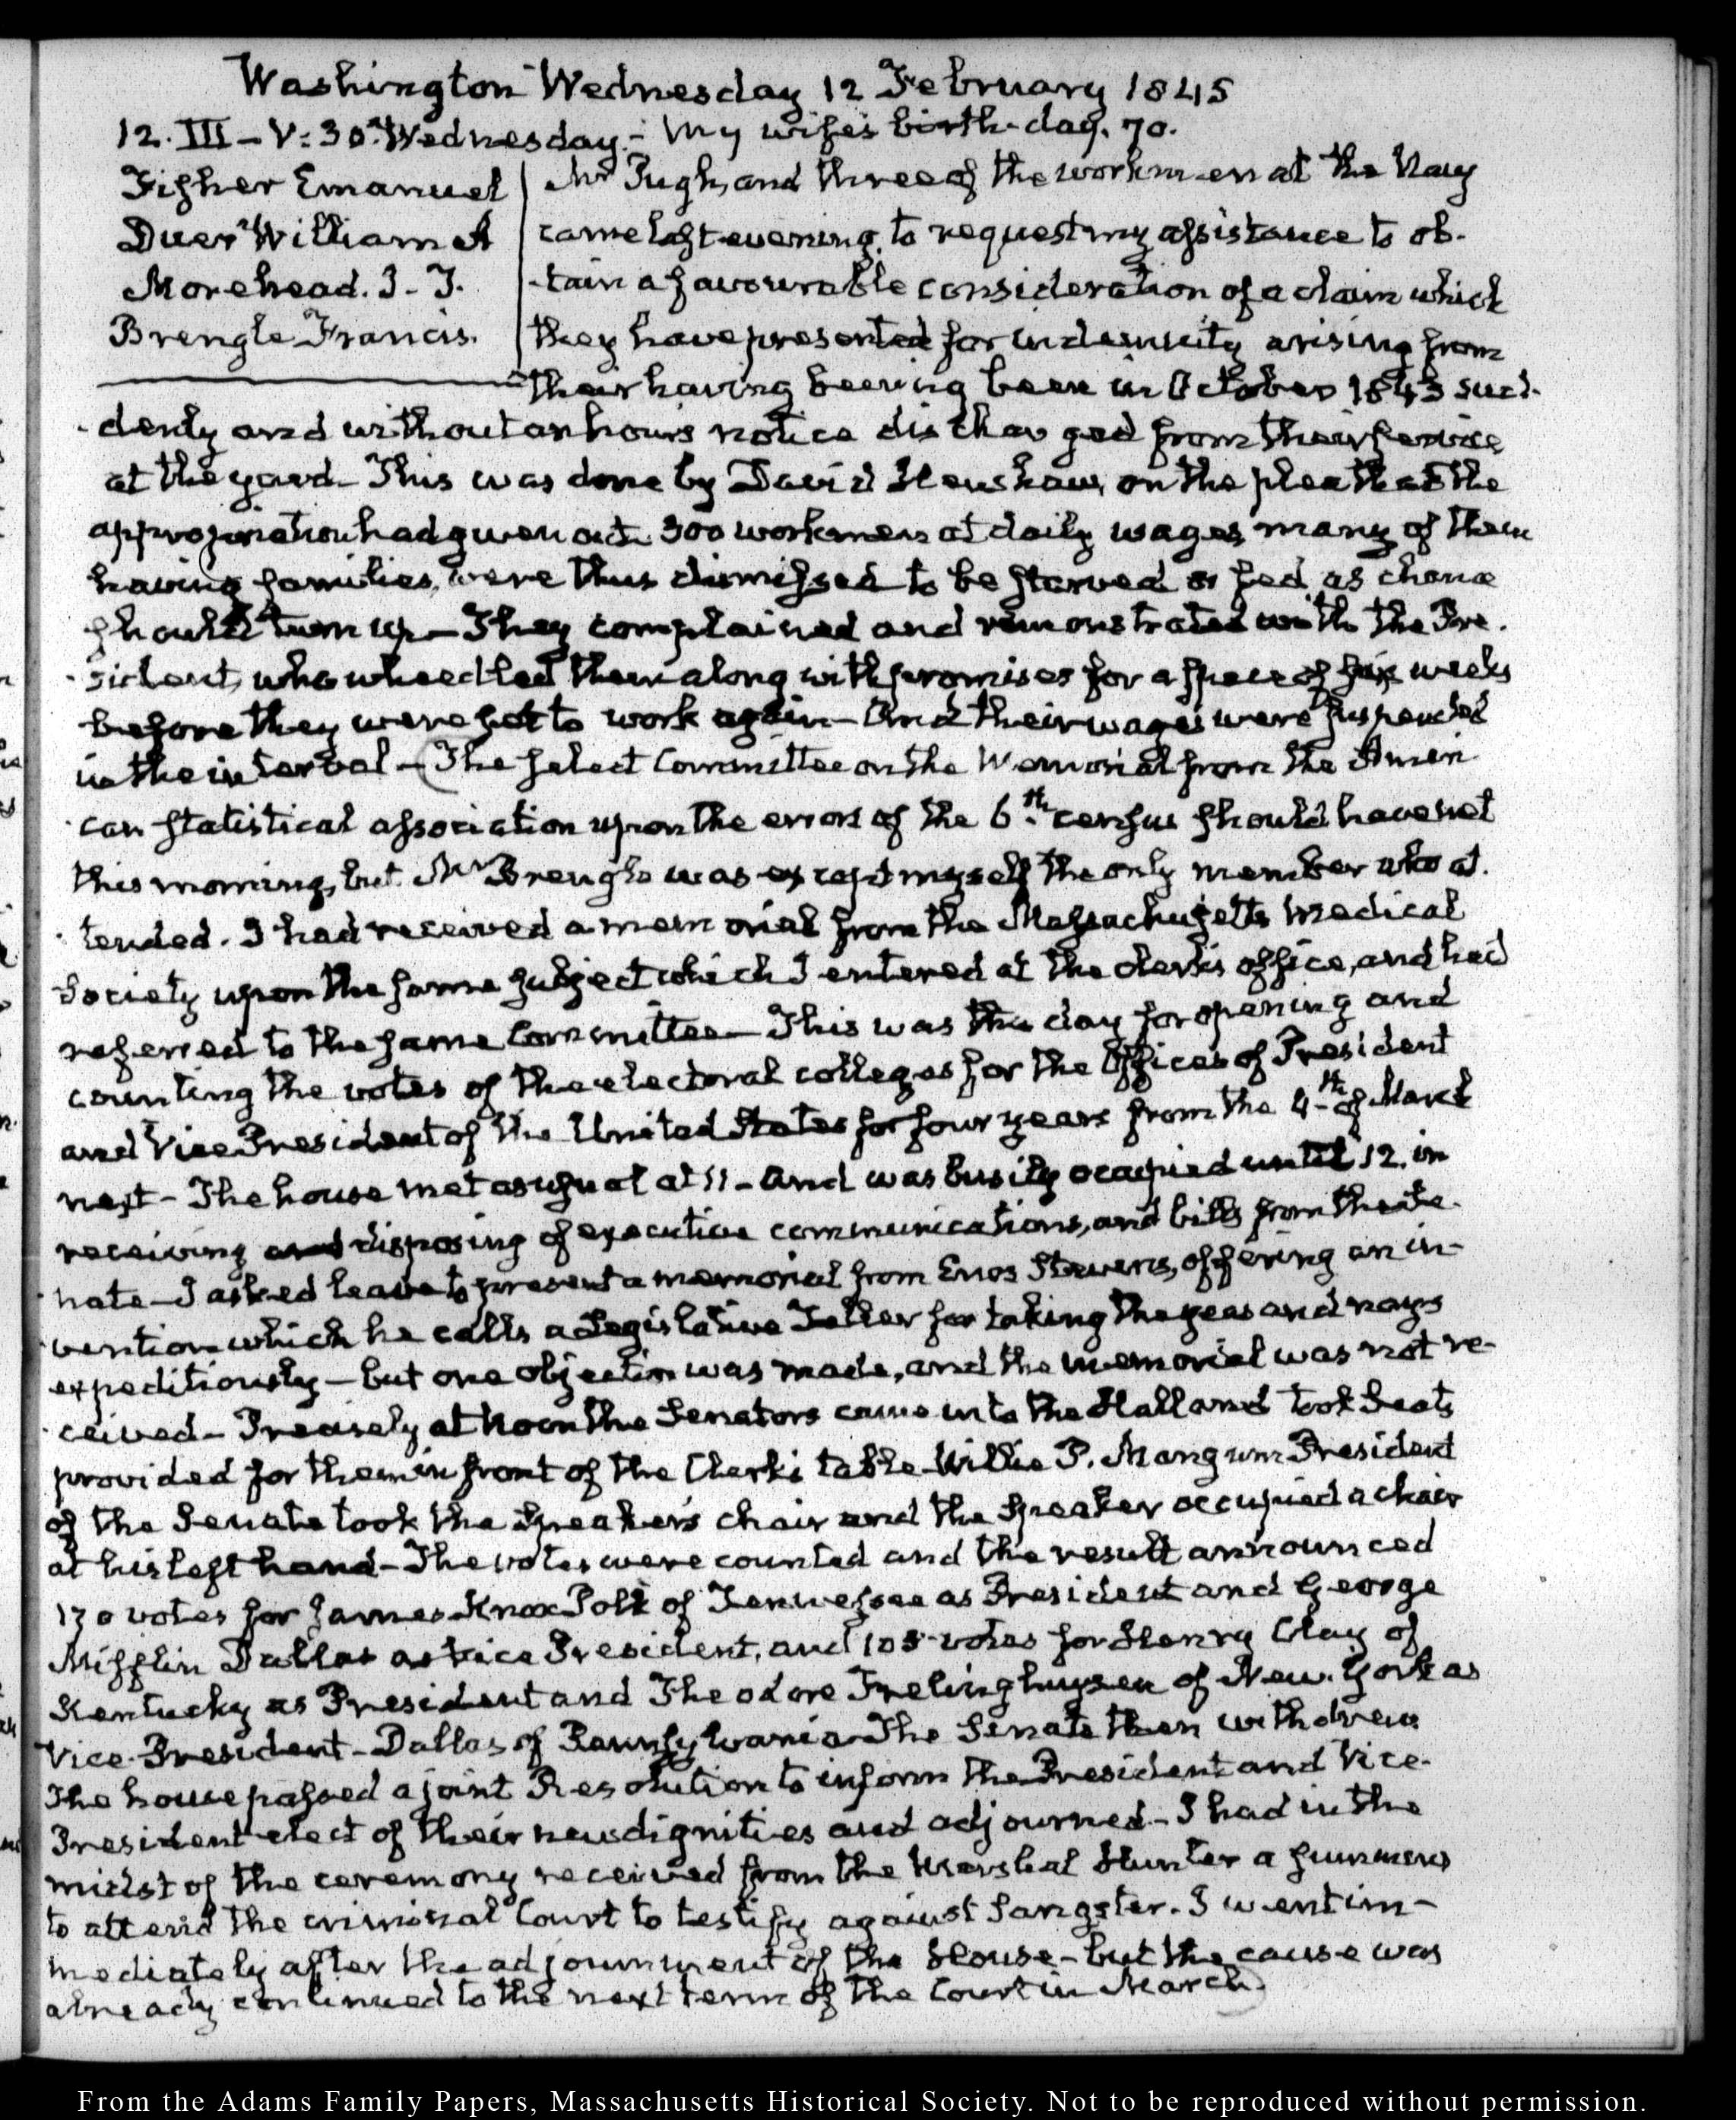 Washington Wednesday 12 February 1845
12. III - V:30. Wednesday. - My wife's birth-day. 70.
Fisher Emanuel
Duer William A
Morehead. J. T.
Brengle Francis.
Mr Pugh, and three of the workmen at the Navy
came last evening, to request my assistance to ob-
-tain a favourable consideration of a claim which
they have presented for indemnity arising from
their having been in October 1843 sud-
-denly and without an hours notice discharged from their service
at the yard - This was done by David Henshaw, on the plea that the
appropriation had given out. 300 workmen at daily wages many of them
having families, were thus dismissed to be starved or fed as chance
should turn up - They complained and remonstrated with the Pre-
-sident, who wheedled them along with promises for a space of six weeks
before they were set to work again - And their wages were suspended
in the interval - The select Committee on the Memorial from the Ameri-
can statistical association upon the errors of the 6th census should have met
this morning, but Mr Brengle was except myself the only member who at-
-tended. I had received a memorial from the Massachusetts Medical
Society upon the same subject which I entered at the clerk's office, and had
referred to the same Committee - This was the day for opening and
counting the votes of the electoral colleges for the Offices of President
and Vice President of the United States for four years from the 4th of March
next - The house met as usual at 11 - and was busily occupied until 12. in
receiving and disposing of executive communications, and bills from the Se-
-nate - I asked leave to present a memorial from Enos Stevens, offering an in-
-vention which he calls a Legislative Teller for taking the yeas and nays
expeditiously - but one objection was made, and the memorial was not re-
-ceived - Precisely at Noon the Senators came into the Hall and took seats
provided for them in front of the Clerk's table - Willie P. Mangum President
of the Senate took the Speaker's chair and the Speaker occupied a chair
at his left hand - The votes were counted and the result announced
170 votes for James Knox Polk of Tennessee as President and George
Mifflin Dallas as Vice President, and 105 votes for Henry Clay of
Kentucky as President and Theodore Frelinghuysen of New-York as
Vice-President - Dallas of Pennsylvania - The Senate then withdrew
The house passed a joint Resolution to inform the President and Vice-
President elect of their new dignities and adjourned - I had in the
midst of the ceremony received from the Marshal Hunter a summons
to attend the criminal Court to testify against Sangster. I went im-
mediately after the adjournment of the House - but the cause was
already continued to the next term of the Court in March.
From the Adams Family Papers, Massachusetts Historical Society. Not to be reproduced without permission.